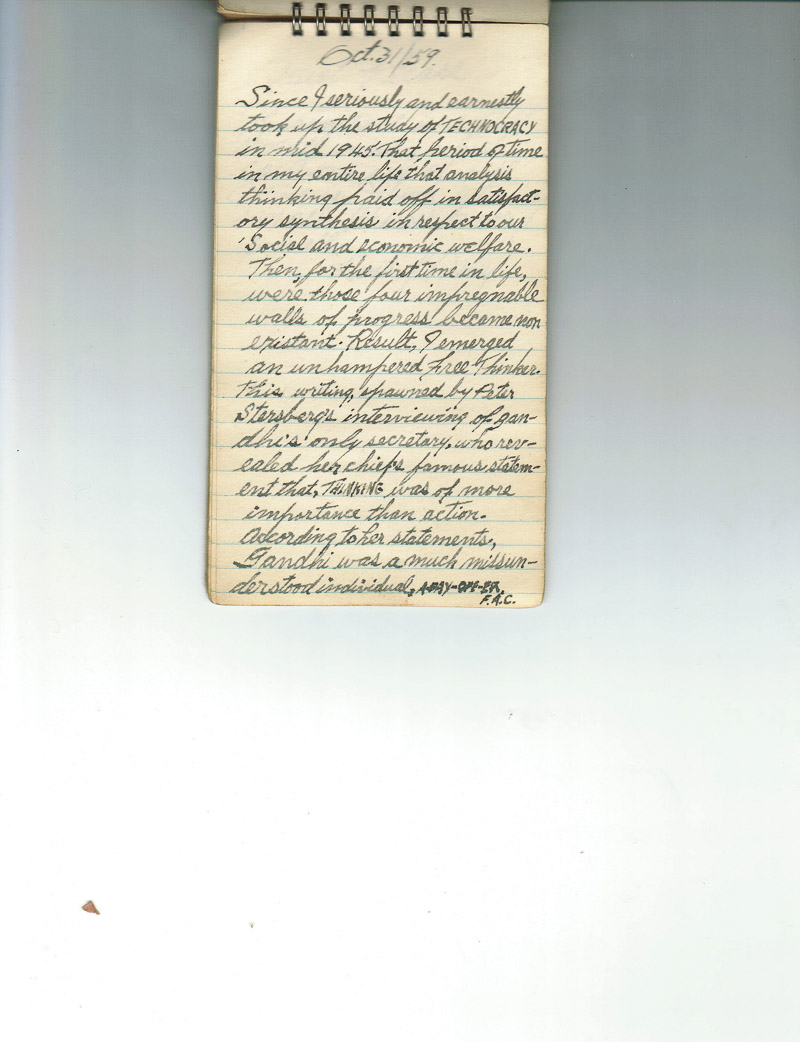 Oct. 31/59.
Since I seriously and earnestly
took up the study of TECHNOCRACY
in mid 1945. That period of time
in my entire life that analysis
thinking paid off in satisfact-
ory synthesis in respect to our
Social and economic welfare.
Then, for the first time in life,
were those four impregnable
walls of progress became non
existant. Result, I emerged
an unhampered Free Thinker.
This writing, spawned by Peter
Stersberg's interviewing of gan-
dhi's only secretary, who rev-
ealed her chief's famous statem-
ent that, THINKING was of more
importance than action.
According to her statements,
Gandhi was a much missun-
derstood individual,
F.A.C.